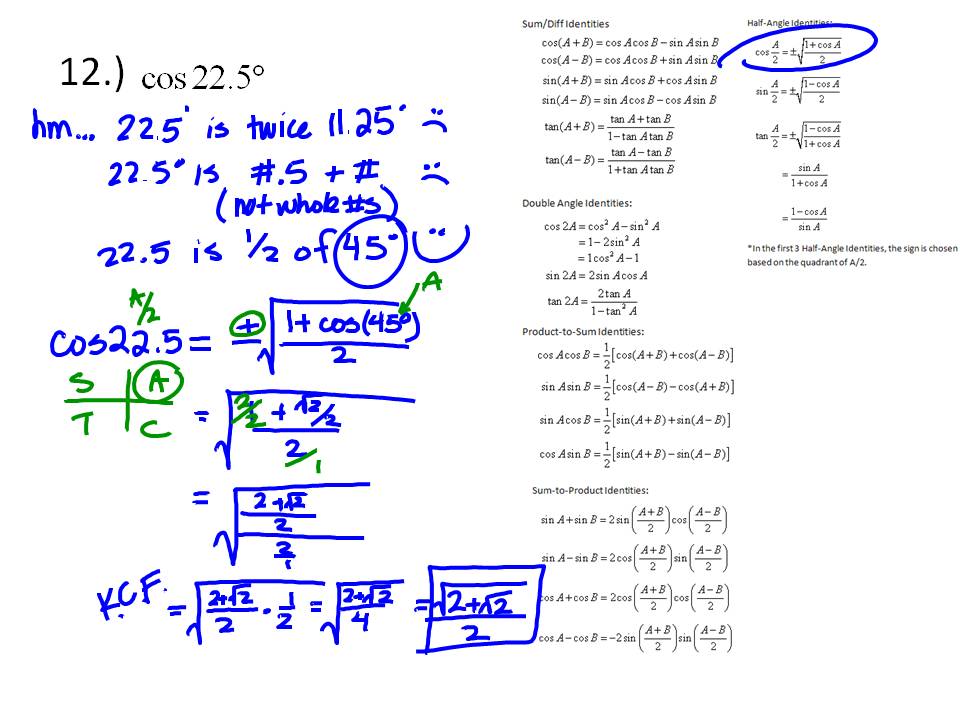 12.) cos 22.5°
hm... 22.5° is twice 11.25° :(
22.5° is #.5 + # :(
(not whole #s)
22.5 is 1/2 of 45° :)
A/2
A
cos22.5 = ±√((1 + cos(45°))/2)
S A
T C
= √((2/2 + √2/2)/(2/1))
= √(((2+√2)/2)/(2/1))
K.C.F. = √((2+√2)/2 · 1/2) = √((2+√2)/4) = √(2+√2)/2
Sum/Diff Identities
cos(A+B) = cos A cos B − sin A sin B
cos(A−B) = cos A cos B + sin A sin B
sin(A+B) = sin A cos B + cos A sin B
sin(A−B) = sin A cos B − cos A sin B
tan(A+B) = (tan A + tan B)/(1 − tan A tan B)
tan(A−B) = (tan A − tan B)/(1 + tan A tan B)
Double Angle Identities:
cos 2A = cos² A − sin² A
= 1 − 2sin² A
= 1cos² A − 1
sin 2A = 2sin A cos A
tan 2A = (2 tan A)/(1 − tan² A)
Product-to-Sum Identities:
cos A cos B = 1/2[cos(A+B) + cos(A−B)]
sin A sin B = 1/2[cos(A−B) − cos(A+B)]
sin A cos B = 1/2[sin(A+B) + sin(A−B)]
cos A sin B = 1/2[sin(A+B) − sin(A−B)]
Sum-to-Product Identities:
sin A + sin B = 2sin((A+B)/2)cos((A−B)/2)
sin A − sin B = 2cos((A+B)/2)sin((A−B)/2)
cos A + cos B = 2cos((A+B)/2)cos((A−B)/2)
cos A − cos B = −2sin((A+B)/2)sin((A−B)/2)
Half-Angle Identities:
cos A/2 = ±√((1+cos A)/2)
sin A/2 = ±√((1−cos A)/2)
tan A/2 = ±√((1−cos A)/(1+cos A))
= sin A/(1+cos A)
= (1−cos A)/sin A
*In the first 3 Half-Angle Identities, the sign is chosen
based on the quadrant of A/2.